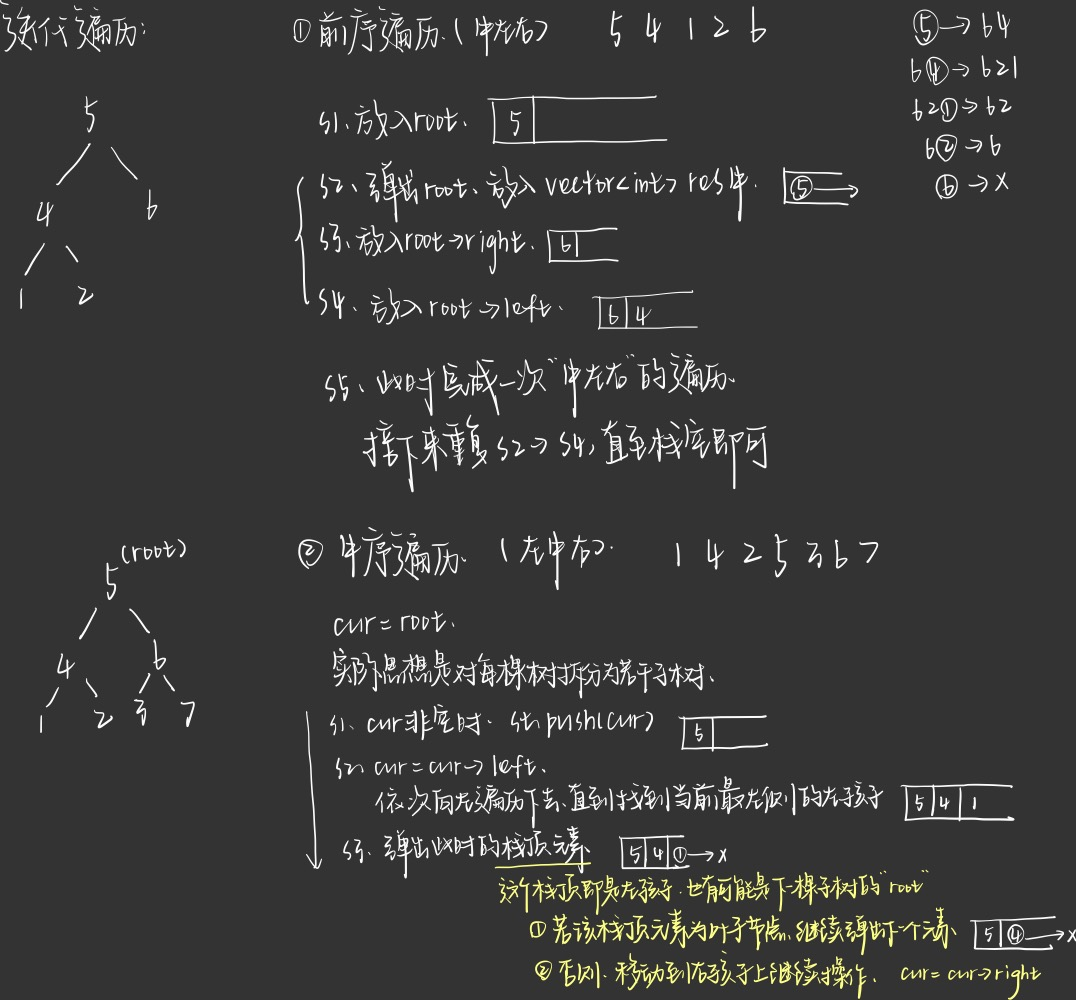 迭代遍历:
① 前序遍历.(中左右) 5 4 1 2 6
⑤→64
6④→621
62①→62
6②→6
⑥→x
5
4 6
1 2
s1、放入root. 5
s2、弹出root、放入vector<int> res中. ⑤→
s3、放入root→right. 6
s4、放入root→left. 6 4
s5、此时完成一次“中左右”的遍历.
接下来重复s2→s4,直至栈空即可
② 中序遍历. (左中右). 1 4 2 5 3 6 7
(root)
5
4 6
1 2 3 7
cur = root.
实际思想是对每棵树拆分为若干子树.
s1、cur非空时. st.push(cur) 5
s2、cur = cur→left.
依次向左遍历下去、直到找到当前最左侧的左孩子 5 4 1
s3、弹出此时的栈顶元素 5 4 ①→x
这个栈顶即是左孩子.也有可能是下一棵子树的“root”
① 若该栈顶元素为叶子节点,继续弹出下一个元素、 5 ④→x
② 否则.移动到右孩子上继续操作. cur = cur→right